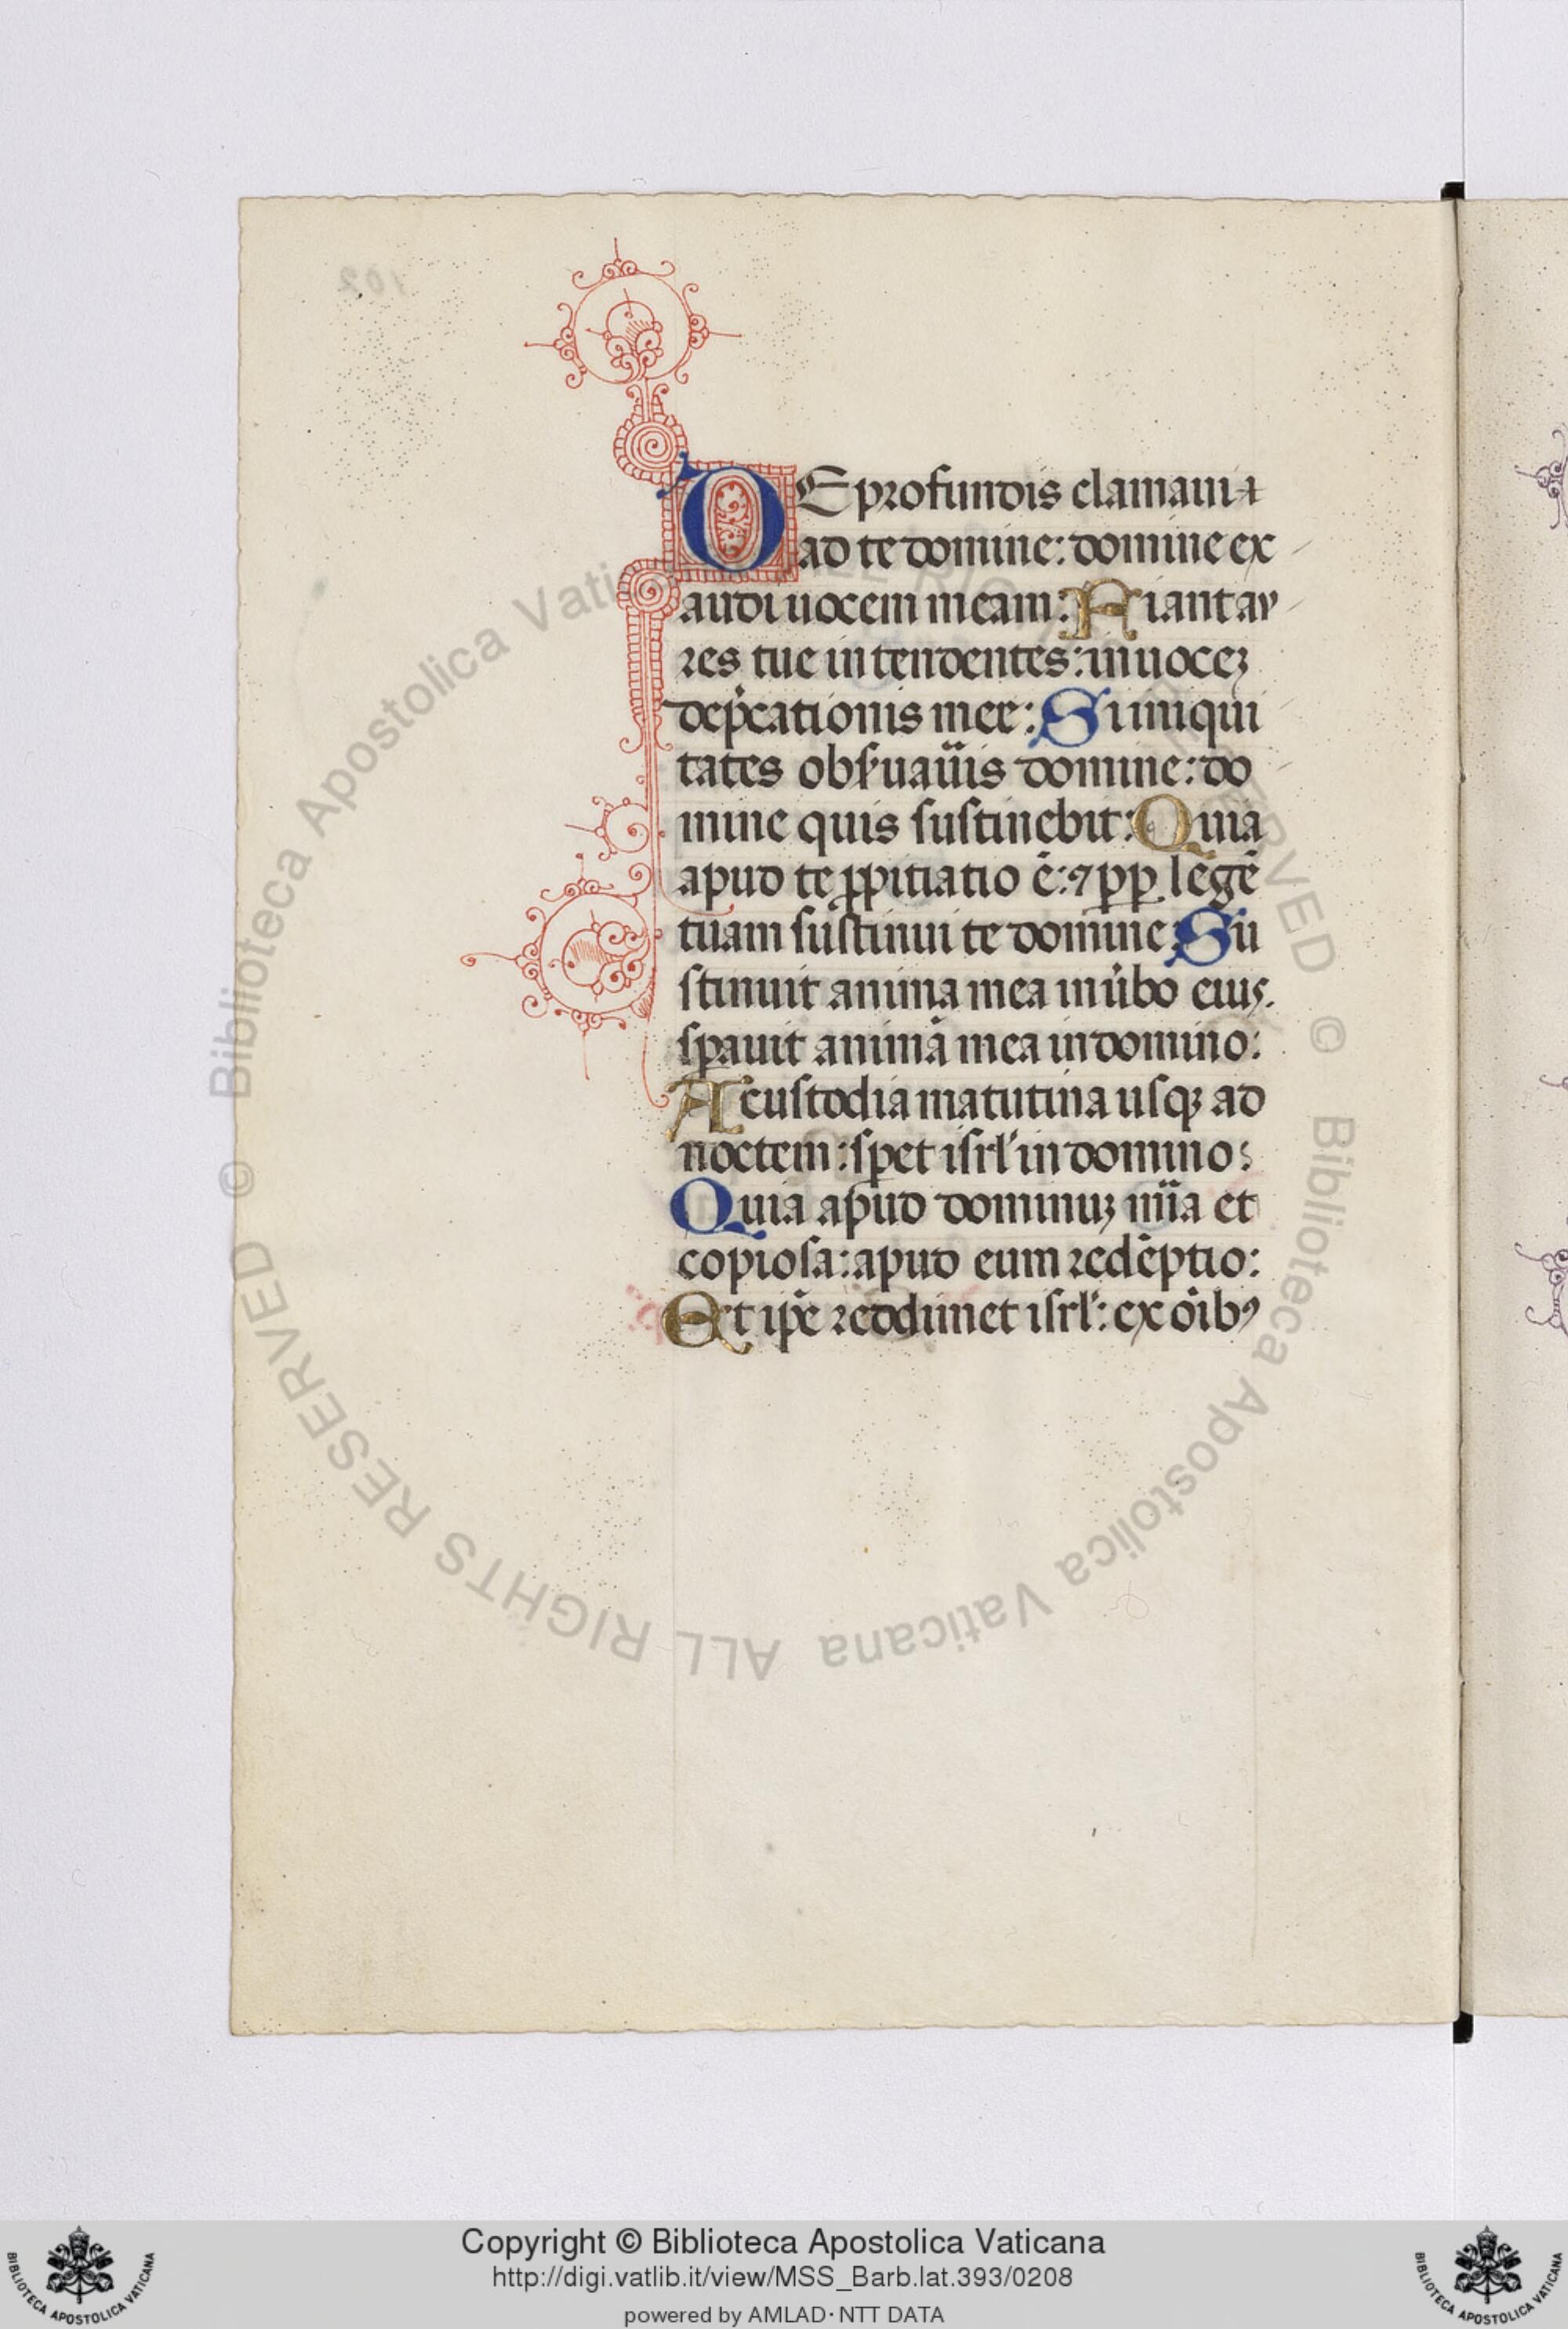 102
DE profundis clamaui
ad te domine: domine ex
audi uocem meam: Fiant au
res tue intendentes: in uoceʒ
dep̄cationis mee: Si iniqui
tates obẜuaũis domine: do
mine quis sustinebit: Quia
apud te ꝓpitiatio ē: ⁊ ꝓp̱ legē
tuam sustinui te domine: Su
stinuit anima mea in ũbo eius.
sꝑauit anima mea in domino:
A custodia matutina usqʒ ad
noctem: sꝑet isrl' in domino:
Quia apud dominuʒ mĩa et
copiosa: apud eum redēptio:
Et ip̄e reddimet isrl': ex oĩbꝰ
© Biblioteca Apostolica Vaticana ALL RIGHTS RESERVED © Biblioteca Apostolica Vaticana ALL RIGHTS RESERVED
Copyright © Biblioteca Apostolica Vaticana
http://digi.vatlib.it/view/MSS_Barb.lat.393/0208
powered by AMLAD · NTT DATA
BIBLIOTECA APOSTOLICA VATICANA
BIBLIOTECA APOSTOLICA VATICANA